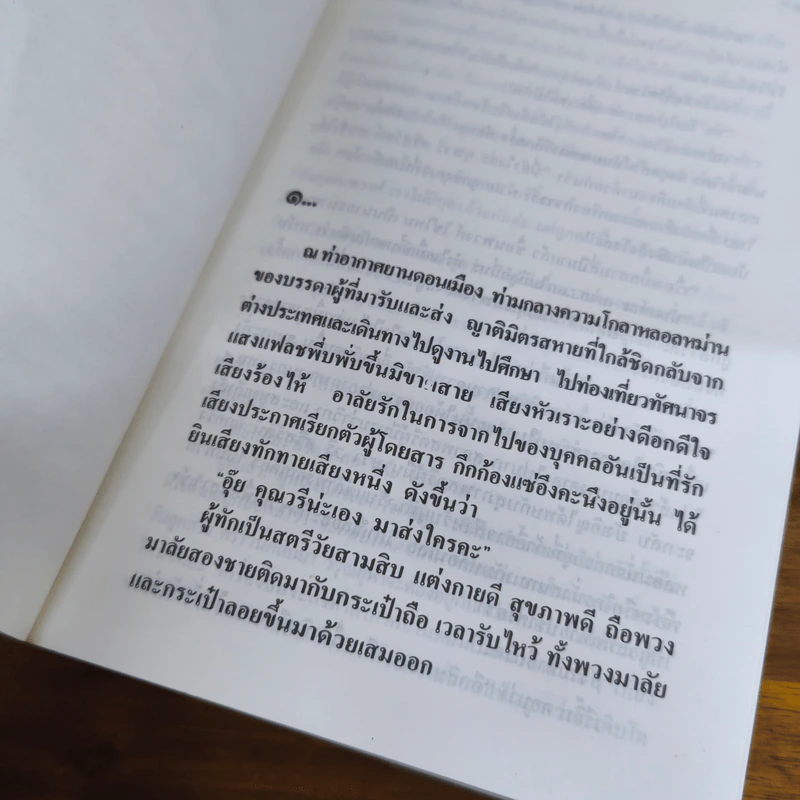 ๑...
ณ ท่าอากาศยานดอนเมือง ท่ามกลางความโกลาหลอลหม่าน
ของบรรดาผู้ที่มารับและส่ง ญาติมิตรสหายที่ใกล้ชิดกลับจาก
ต่างประเทศและเดินทางไปดูงานไปศึกษา ไปท่องเที่ยวทัศนาจร
แสงแฟลชพึ่บพั่บขึ้นมิขาดสาย เสียงหัวเราะอย่างดีอกดีใจ
เสียงร้องไห้ อาลัยรักในการจากไปของบุคคลอันเป็นที่รัก
เสียงประกาศเรียกตัวผู้โดยสาร กึกก้องแซ่อึงคะนึงอยู่นั้น ได้
ยินเสียงทักทายเสียงหนึ่ง ดังขึ้นว่า
“อุ๊ย คุณวรีน่ะเอง มาส่งใครคะ”
ผู้ทักเป็นสตรีวัยสามสิบ แต่งกายดี สุขภาพดี ถือพวง
มาลัยสองชายติดมากับกระเป๋าถือ เวลารับไหว้ ทั้งพวงมาลัย
และกระเป๋าลอยขึ้นมาด้วยเสมออก